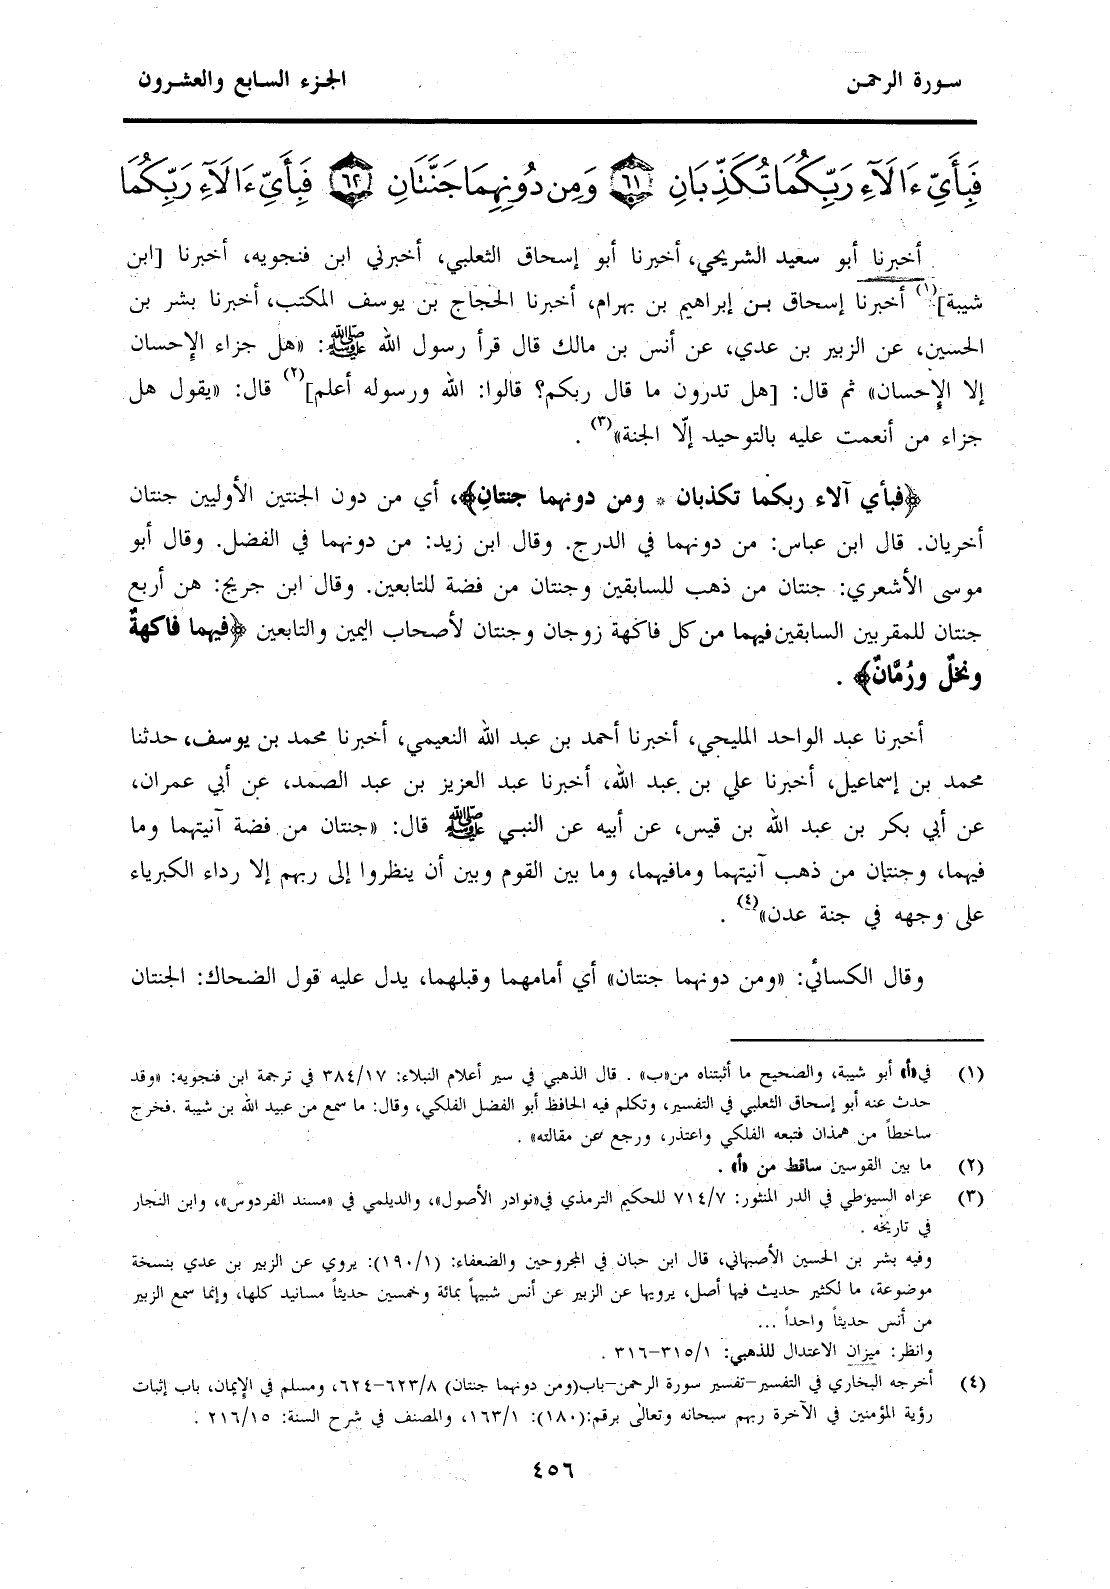 سورة الرحمن
الجزء السابع والعشرون
فَبِأَيِّ ءَالَآءِ رَبِّكُمَا تُكَذِّبَانِ ٦١ وَمِن دُونِهِمَا جَنَّتَانِ ٦٢ فَبِأَيِّ ءَالَآءِ رَبِّكُمَا
أخبرنا أبو سعيد الشريحي، أخبرنا أبو إسحاق الثعلبي، أخبرني ابن فنجويه، أخبرنا [ابن
شيبة](١) أخبرنا إسحاق بن إبراهيم بن بهرام، أخبرنا الحجاج بن يوسف المكتب، أخبرنا بشر بن
الحسين، عن الزبير بن عدي، عن أنس بن مالك قال قرأ رسول الله ﷺ: «هل جزاء الإحسان
إلا الإحسان» ثم قال: [هل تدرون ما قال ربكم؟ قالوا: الله ورسوله أعلم](٢) قال: «يقول هل
جزاء من أنعمت عليه بالتوحيد إلّا الجنة»(٣) .
﴿فبأي آلاء ربكما تكذبان * ومن دونهما جنتانِ﴾، أي من دون الجنتين الأوليين جنتان
أخريان. قال ابن عباس: من دونهما في الدرج. وقال ابن زيد: من دونهما في الفضل. وقال أبو
موسى الأشعري: جنتان من ذهب للسابقين وجنتان من فضة للتابعين. وقال ابن جريج: هن أربع
جنتان للمقربين السابقين فيهما من كل فاكهة زوجان وجنتان لأصحاب اليمين والتابعين ﴿فيهما فاكهةٌ
ونخلٌ ورُمَّانٌ﴾ .
أخبرنا عبد الواحد المليحي، أخبرنا أحمد بن عبد الله النعيمي، أخبرنا محمد بن يوسف، حدثنا
محمد بن إسماعيل، أخبرنا علي بن عبد الله، أخبرنا عبد العزيز بن عبد الصمد، عن أبي عمران،
عن أبي بكر بن عبد الله بن قيس، عن أبيه عن النبي ﷺ قال: «جنتان من فضة آنيتهما وما
فيهما، وجنتان من ذهب آنيتهما ومافيهما، وما بين القوم وبين أن ينظروا إلى ربهم إلا رداء الكبرياء
على وجهه في جنة عدن»(٤) .
وقال الكسائي: «ومن دونهما جنتان» أي أمامهما وقبلهما، يدل عليه قول الضحاك: الجنتان
(١) في«أ» أبو شيبة، والصحيح ما أثبتناه من«ب» . قال الذهبي في سير أعلام النبلاء: ٣٨٤/١٧ في ترجمة ابن فنجويه: «وقد
حدث عنه أبو إسحاق الثعلبي في التفسير، وتكلم فيه الحافظ أبو الفضل الفلكي، وقال: ما سمع من عبيد الله بن شيبة .فخرج
ساخطاً من همذان فتبعه الفلكي واعتذر، ورجع عن مقالته» .
(٢) ما بين القوسين ساقط من «أ» .
(٣) عزاه السيوطي في الدر المنثور: ٧١٤/٧ للحكيم الترمذي في«نوادر الأصول»، والديلمي في «مسند الفردوس»، وابن النجار
في تاريخه .
وفيه بشر بن الحسين الأصبهاني، قال ابن حبان في المجروحين والضعفاء: (١٩٠/١): يروي عن الزبير بن عدي بنسخة
موضوعة، ما لكثير حديث فيها أصل، يرويها عن الزبير عن أنس شبيهاً بمائة وخمسين حديثاً مسانيد كلها، وإنما سمع الزبير
من أنس حديثاً واحداً ...
وانظر: ميزان الاعتدال للذهبي: ٣١٥/١-٣١٦ .
(٤) أخرجه البخاري في التفسير-تفسير سورة الرحمن-باب(ومن دونهما جنتان) ٦٢٣/٨-٦٢٤، ومسلم في الإيمان، باب إثبات
رؤية المؤمنين في الآخرة ربهم سبحانه وتعالى برقم:(١٨٠): ١٦٣/١، والمصنف في شرح السنة: ٢١٦/١٥ .
٤٥٦